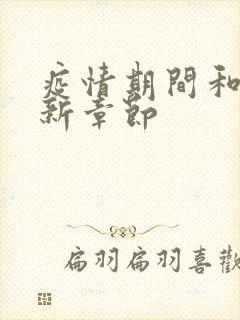 疫情期間和
新章節
扁羽扁羽喜歡